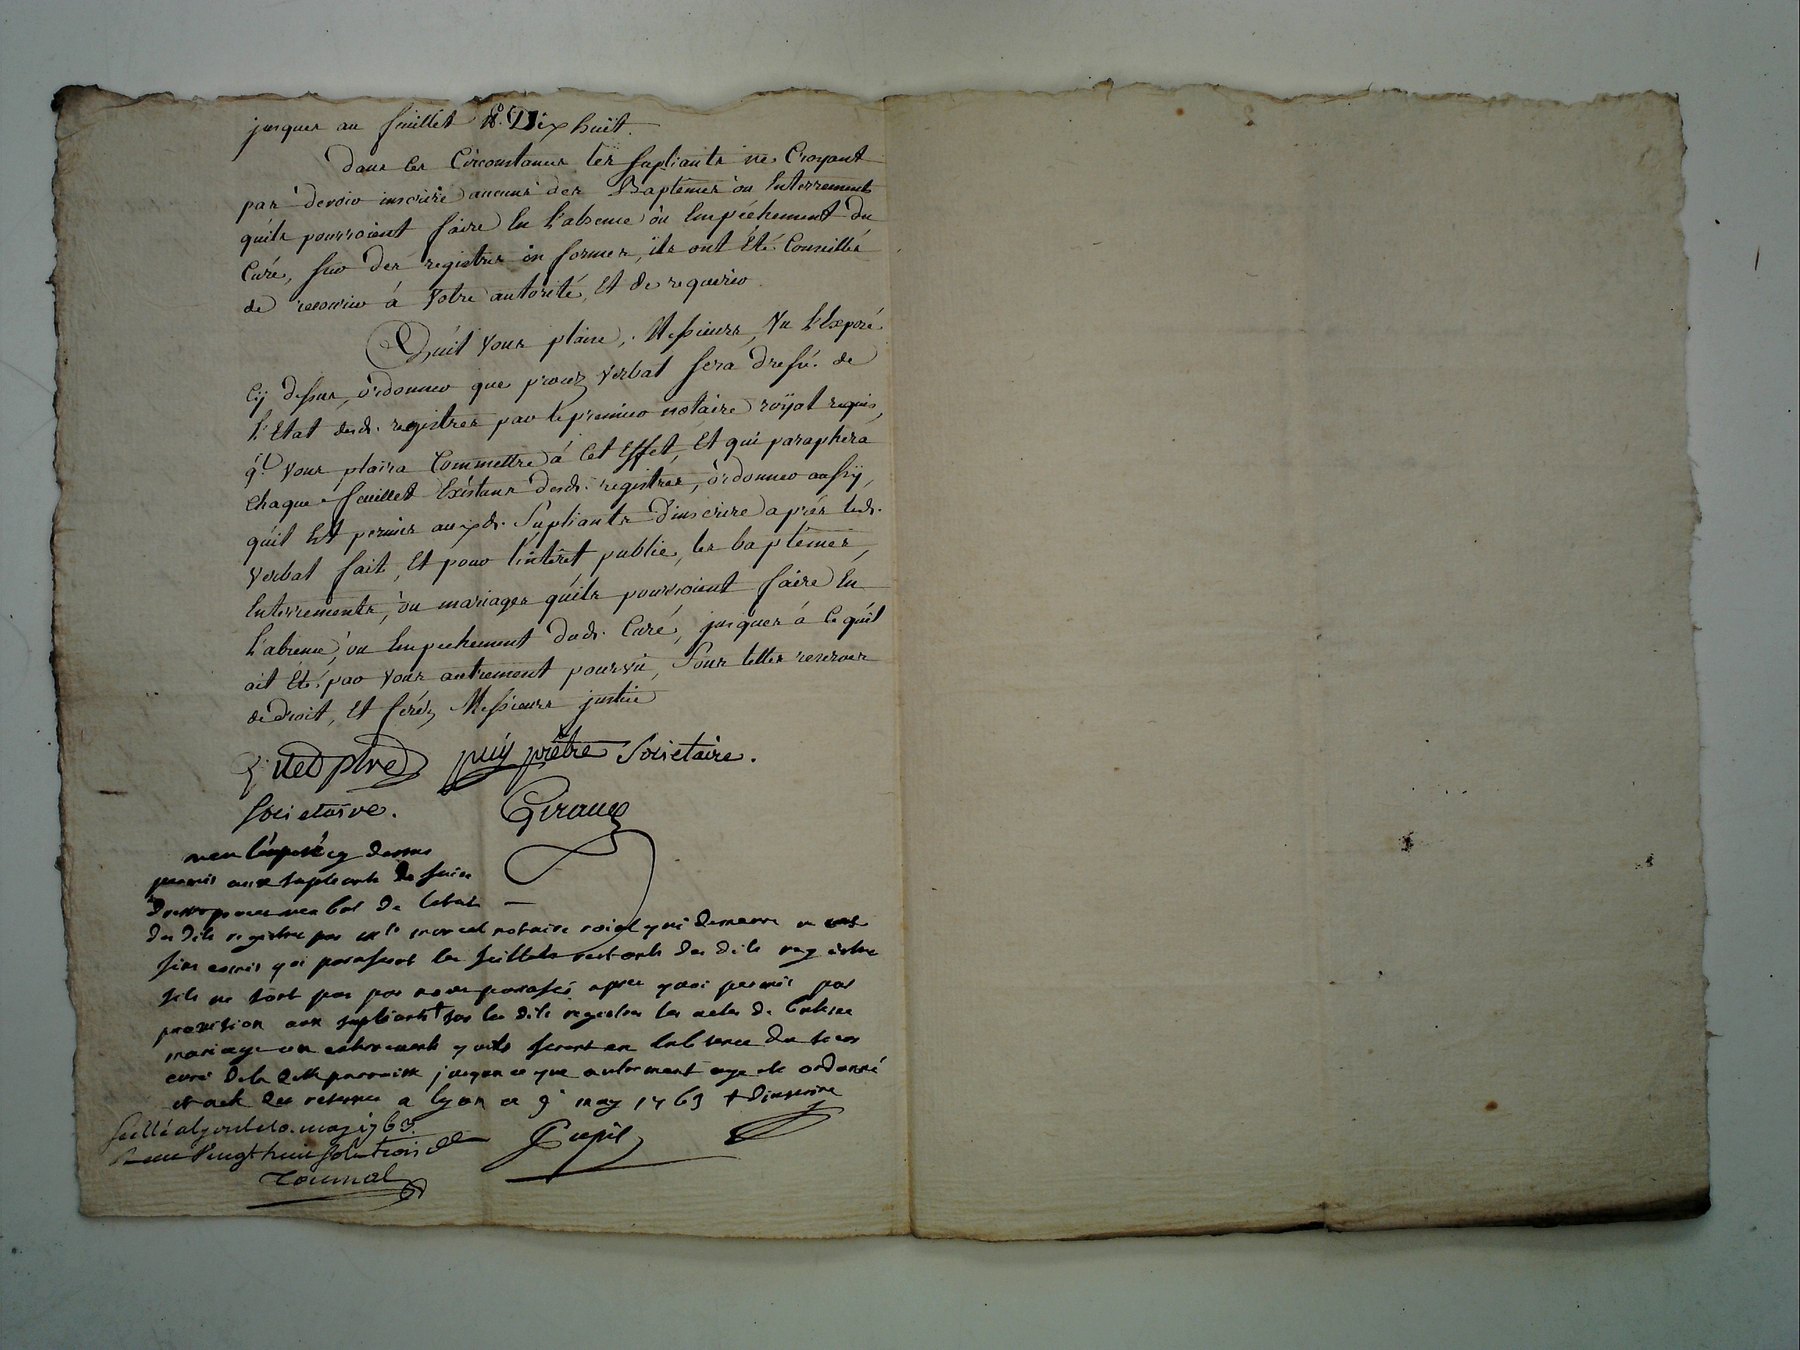 jusques au feuillet 18.e Dix huit.
Dans ces Circonstances les supliants ne Croyant
pas devoir inscrire aucuns des Baptemes ou Enterrements
quils pourroient faire En L'absence ou Empéchement du
Curé, sur des registres in formes, ils ont Eté Conseillés
de recourir à Votre autorité, Et de requerir
Quil Vous plaise, Messieurs, Vu L'Exposé
Cy dessus, ordonner que procez Verbal sera dressé de
L'Etat desd. registres par le premier notaire royal requis,
q'il Vous plaira Commettre à Cet Effet, Et qui paraphera
Chaque feuillet Existans desd. registres, ordonner aussy,
quil Est permis auxd. Supliants d'inscrire après led.
Verbal fait, Et pour l'intéret public, les baptemes,
Enterrements, ou mariages quils pourroient faire En
L'absence, ou Empechement dud. Curé, jusques à Ce quil
ait Eté par Vous autrement pourvu, Sous telles reserves
de droit, Et feréz Messieurs justice
puy prêtre Societaire.
Societaire. Giraud
veu l'exposé cy dessus
permis aux supliants de faire
dresser procez verbal de l'etat
des dits registres par notaire roial qui demeure a cet
fin comis qui parafera les feuillets restants des dits registres
sils ne sont pas par nous parafés apres quoi permis par
provision aux supliants + sur les dits registres les actes de batesme
mariage ou enterrements quils feront en labsence du sieur
curé de la ditte parroisse jusqua ce que autrement aye ete ordonné
a lyon ce 9e may 1763 + dinscrire
scellé a lyon le 10. may 1763.
Pupil
Tournal